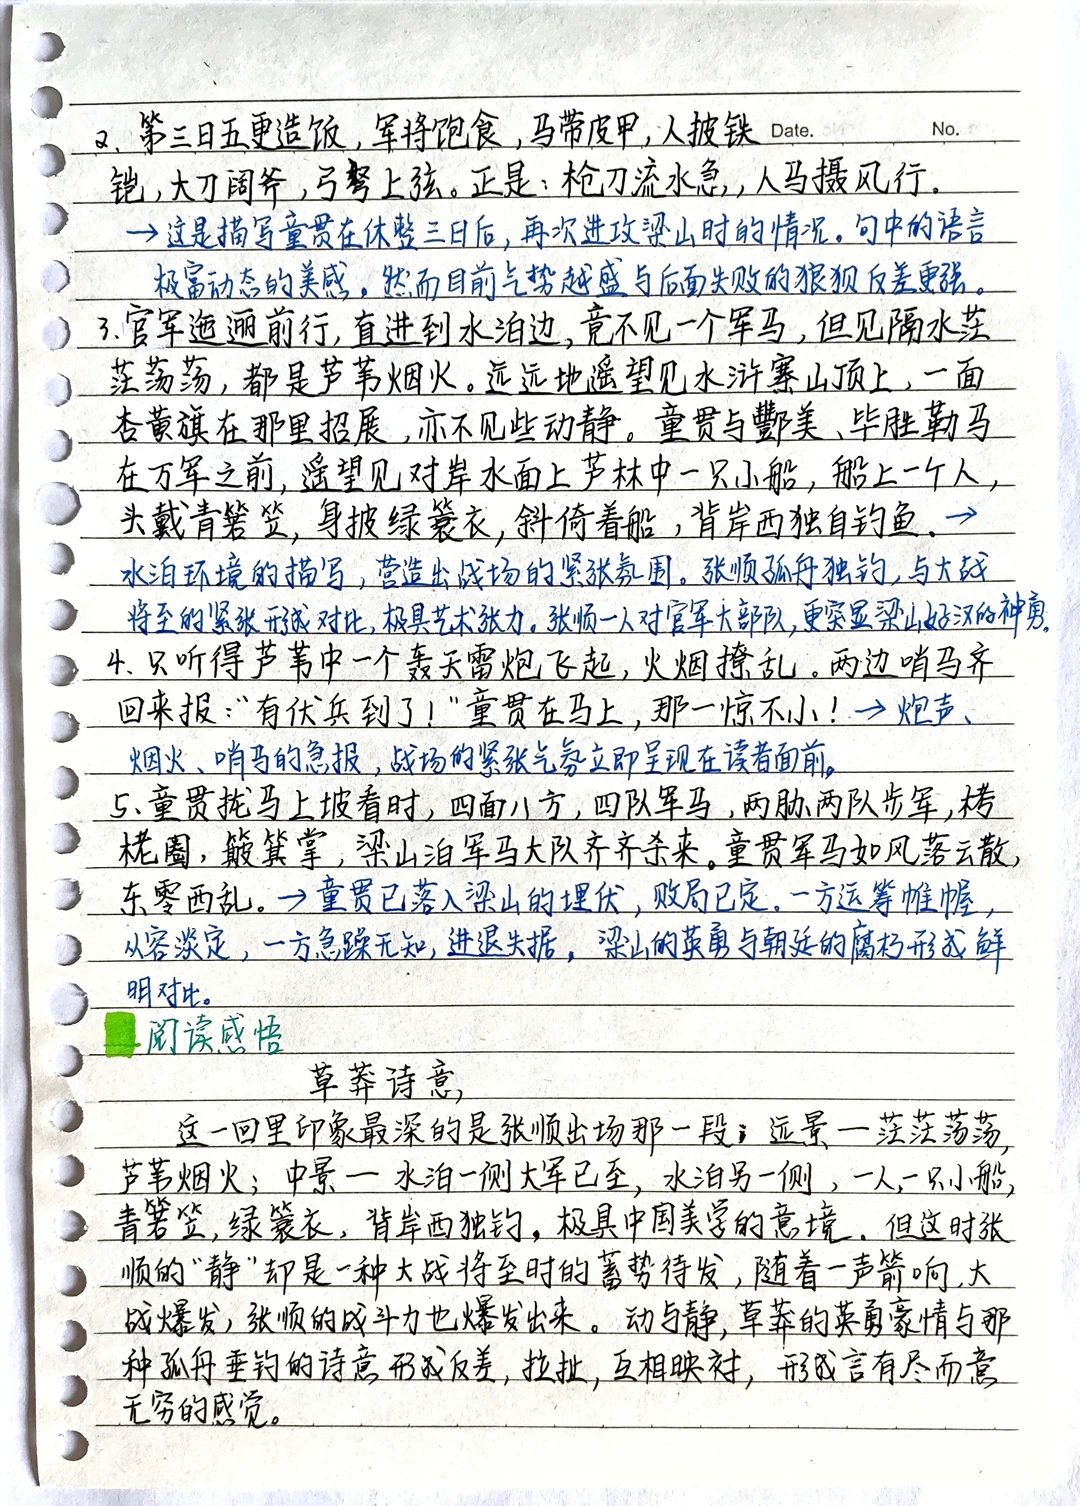 2、第三日五更造饭，军将饱食，马带皮甲，人披铁
Date.
No.
铠，大刀阔斧，弓弩上弦。正是：枪刀流水急，人马撮风行。
→这是描写童贯在休整三日后，再次进攻梁山时的情况。句中的语言
极富动态的美感。然而目前气势越盛与后面失败的狼狈反差更强。
3、官军迤逦前行，直进到水泊边，竟不见一个军马，但见隔水茫
茫荡荡，都是芦苇烟火。远远地遥望见水浒寨山顶上，一面
杏黄旗在那里招展，亦不见些动静。童贯与酆美、毕胜勒马
在万军之前，遥望见对岸水面上芦林中一只小船，船上一个人，
头戴青箬笠，身披绿蓑衣，斜倚着船，背岸西独自钓鱼。→
水泊环境的描写，营造出战场的紧张氛围。张顺孤舟独钓，与大战
将至的紧张形成对比，极具艺术张力。张顺一人对官军大部队，更突显梁山好汉的神勇。
4、只听得芦苇中一个轰天雷炮飞起，火烟撩乱。两边哨马齐
回来报：“有伏兵到了！”童贯在马上，那一惊不小！→炮声、
烟火、哨马的急报，战场的紧张气氛立即呈现在读者面前。
5、童贯拢马上坡看时，四面八方，四队军马，两胁两队步军，栲
栳圈，簸箕掌，梁山泊军马大队齐齐杀来。童贯军马如风落云散，
东零西乱。→童贯已落入梁山的埋伏，败局已定。一方运筹帷幄，
从容淡定，一方急躁无知，进退失据。梁山的英勇与朝廷的腐朽形成鲜
明对比。
阅读感悟
草莽诗意
这一回里印象最深的是张顺出场那一段；远景—茫茫荡荡，
芦苇烟火；中景— 水泊一侧大军已至，水泊另一侧，一人，一只小船，
青箬笠，绿蓑衣，背岸西独钓。极具中国美学的意境。但这时张
顺的“静”却是一种大战将至时的蓄势待发，随着一声箭响，大
战爆发，张顺的战斗力也爆发出来。动与静，草莽的英勇豪情与那
种孤舟垂钓的诗意形成反差，拉扯，互相映衬，形成言有尽而意
无穷的感觉。